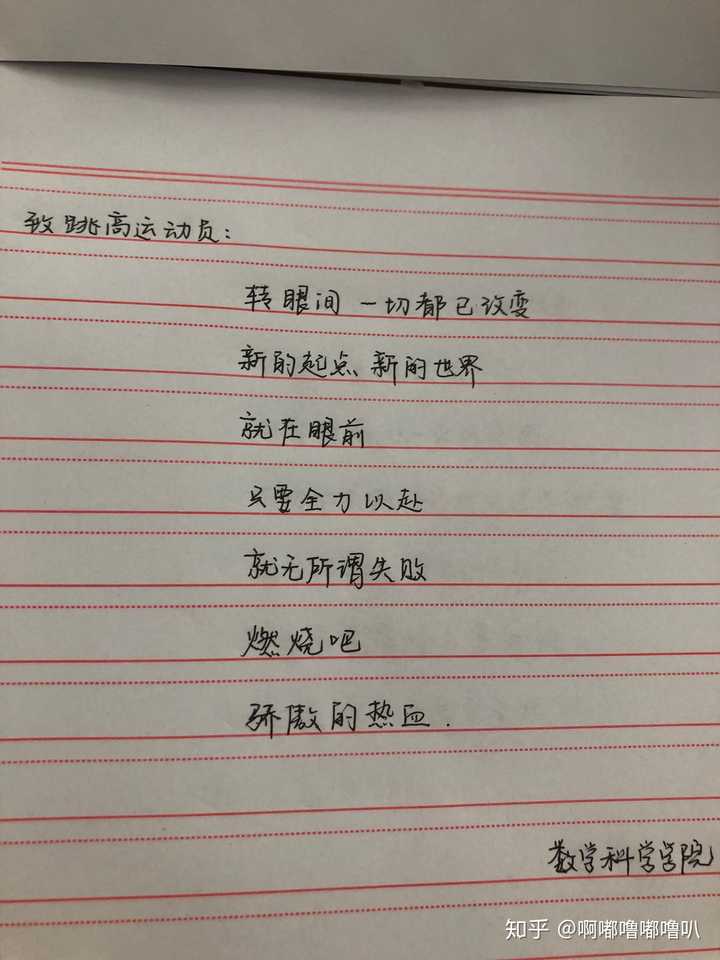 致跳高运动员：
转眼间 一切都已改变
新的起点、新的世界
就在眼前
只要全力以赴
就无所谓失败
燃烧吧
骄傲的热血.
数学科学学院
知乎 @啊嘟噜嘟噜叭